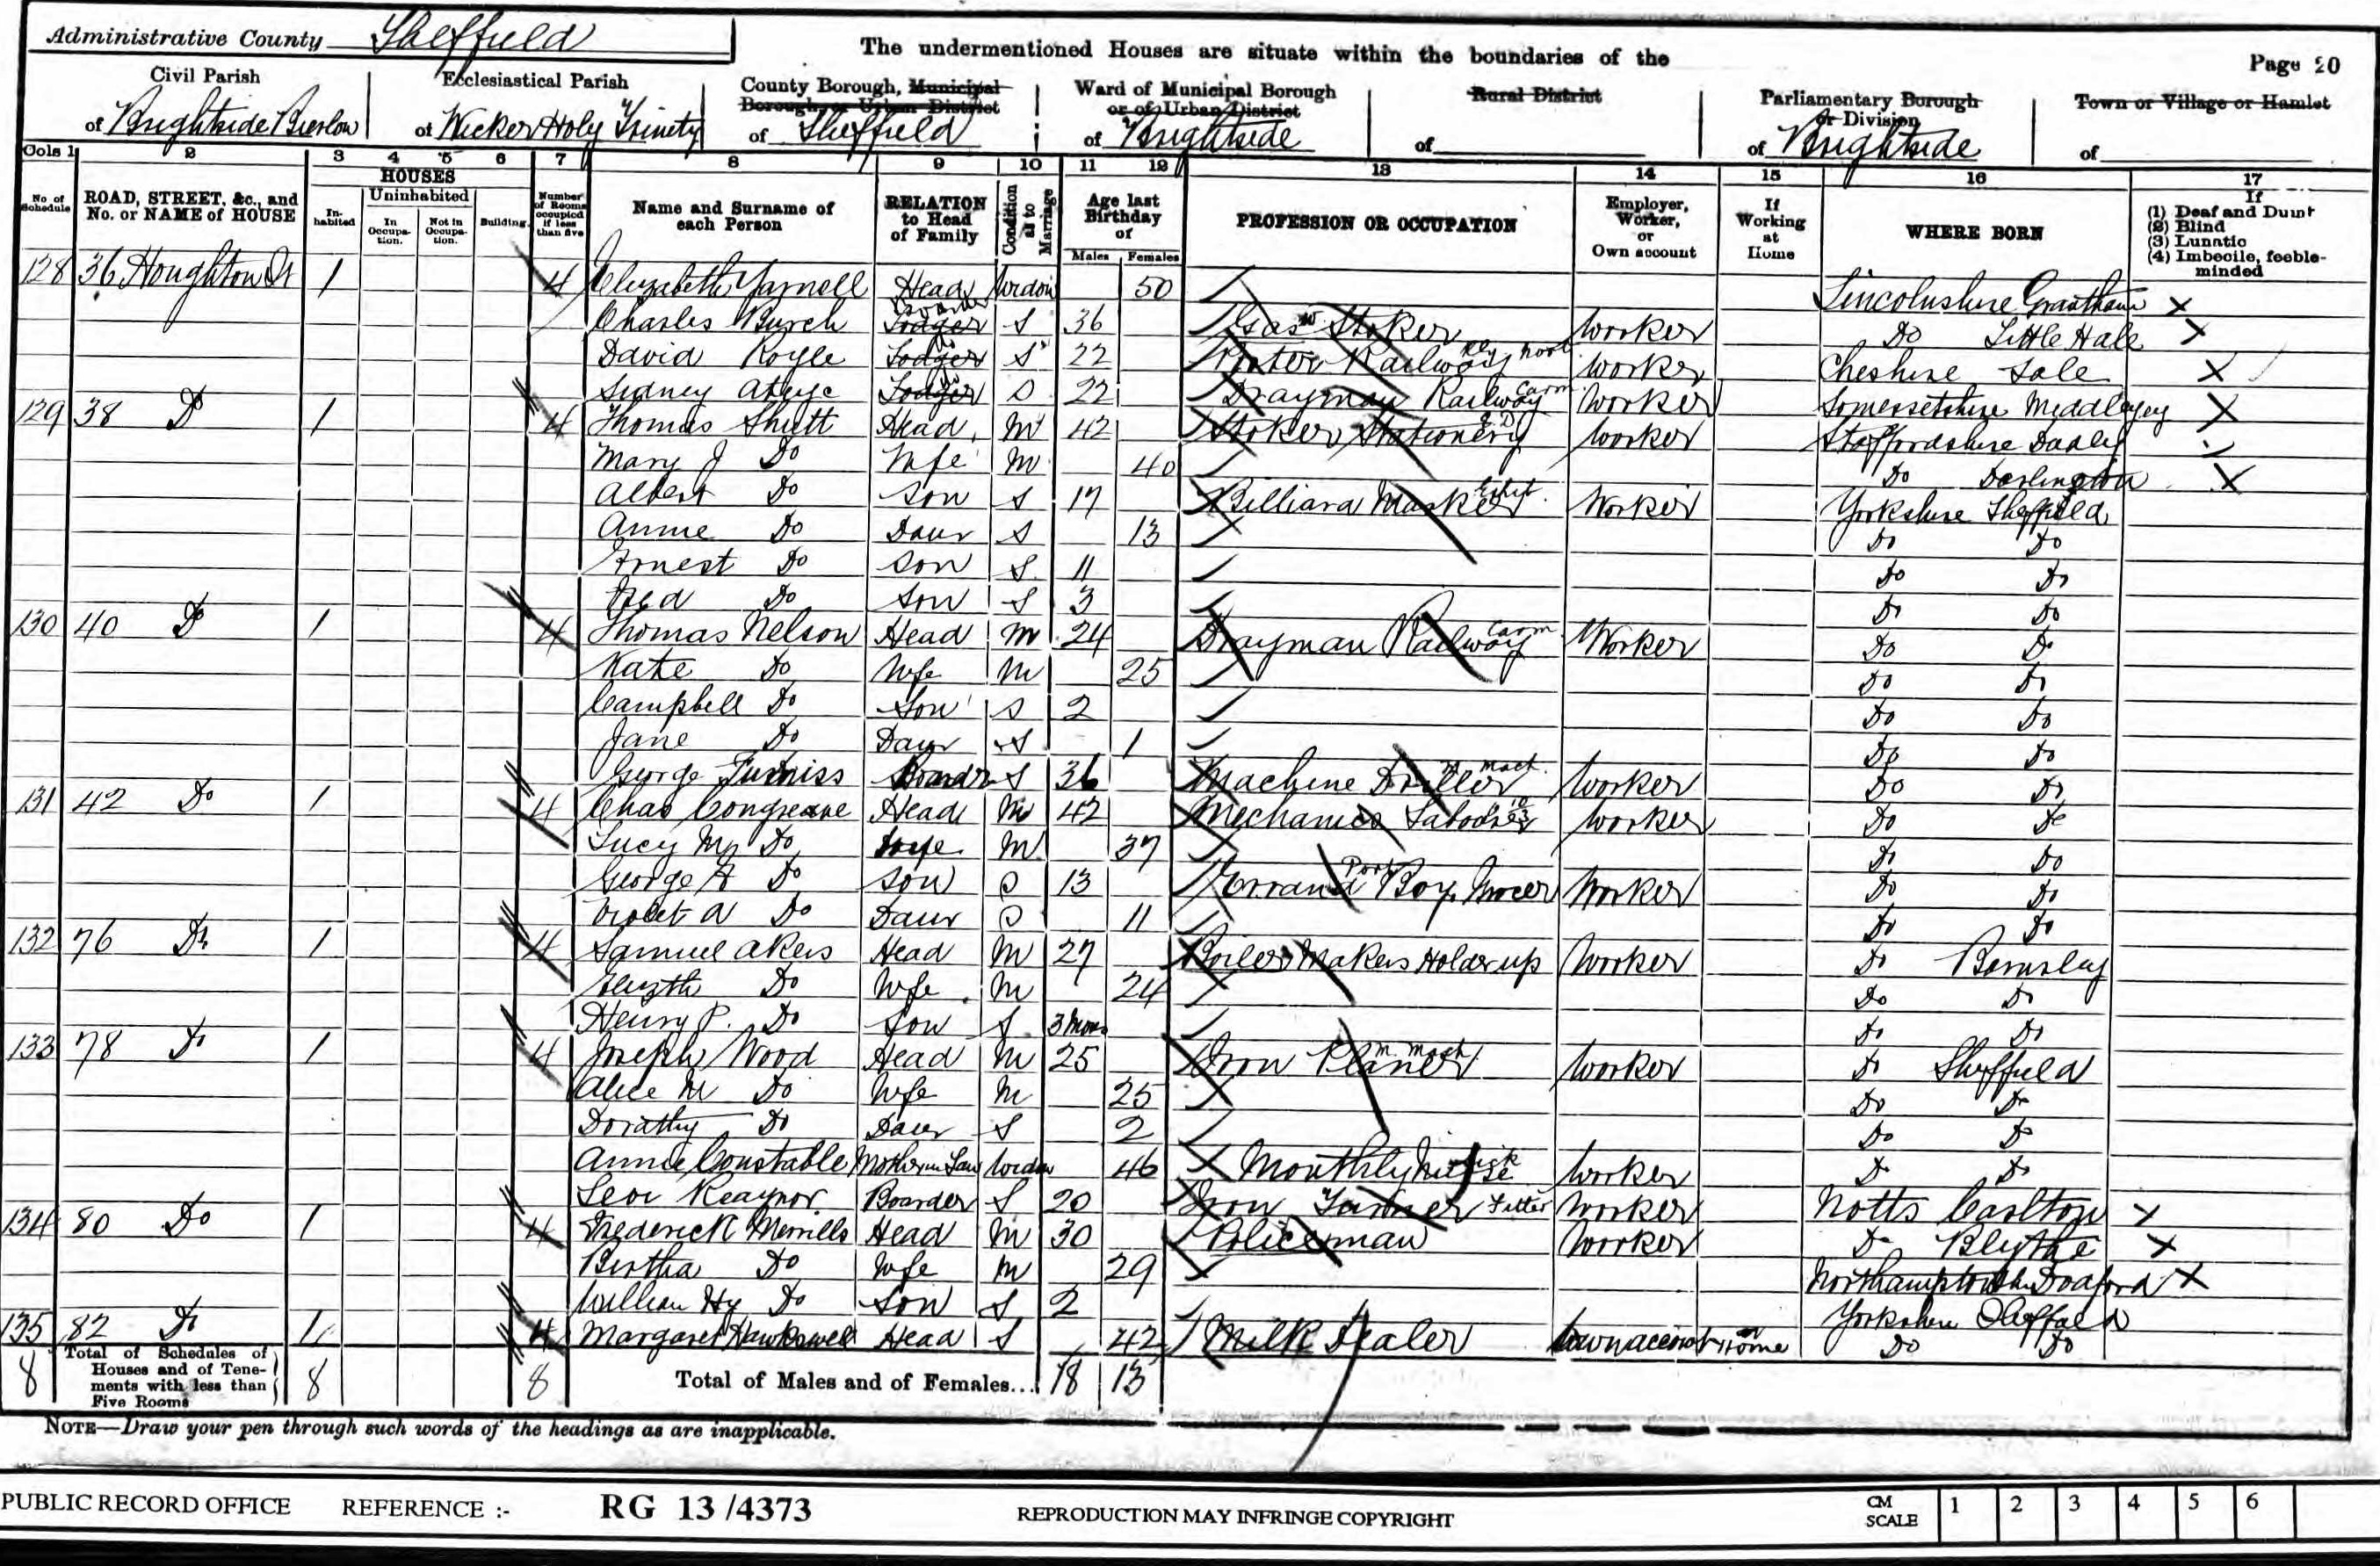 Administrative County Sheffield
The undermentioned Houses are situate within the boundaries of the
Page 20
Civil Parish of Brightside Bierlow
Ecclesiastical Parish of Wicker Holy Trinity
County Borough, Municipal Borough or Urban District of Sheffield
Ward of Municipal Borough or of Urban District of Brightside
Rural District of
Parliamentary Borough or Division of Brightside
Town or Village or Hamlet of
Cols 1 2 3 4 5 6 7 8 9 10 11 12 13 14 15 16 17
No of Schedule
ROAD, STREET, &c., and No. or NAME of HOUSE
HOUSES
Inhabited
Uninhabited
In Occupation.
Not in Occupation.
Building.
Number of Rooms occupied if less than five
Name and Surname of each Person
RELATION to Head of Family
Condition as to Marriage
Age last Birthday of
Males Females
PROFESSION OR OCCUPATION
Employer, Worker, or Own account
If Working at Home
WHERE BORN
If (1) Deaf and Dumb (2) Blind (3) Lunatic (4) Imbecile, feeble-minded
128 36 Houghton St 1 4 Elizabeth Yarnell Head Widow 50 Lincolnshire Grantham
Charles Burch Boarder Lodger S 36 Gas Stoker Worker Do Little Hale
David Royle Lodger S 22 Porter Railway Worker Cheshire Sale
Sidney Lodger S 22 Drayman Railway Carm Worker Somersetshire
129 38 Do 1 4 Thomas Shutt Head M 42 Stoker Stationery Worker Staffordshire
Mary J Do Wife M 40 Do Darlington
Albert Do Son S 17 Billiard Marker Worker Yorkshire Sheffield
Annie Do Daur S 13 Do Do
Ernest Do Son S 11 Do Do
Fred Do Son S 3 Do Do
130 40 Do 1 4 Thomas Nelson Head M 24 Drayman Railway Carm Worker Do Do
Kate Do Wife M 25 Do Do
Campbell Do Son S 2 Do Do
Jane Do Daur S 1 Do Do
George Furniss Boarder S 36 Machine Driller Worker Do Do
131 42 Do 1 4 Chas Congreave Head M 42 Mechanics Labourer Worker Do Do
Lucy M Do Wife M 37 Do Do
George A Do Son S 13 Errand Boy Grocer Worker Do Do
Violet A Do Daur S 11 Do Do
132 76 Do 1 4 Samuel Akers Head M 27 Boiler Makers Holder up Worker Do Barnsley
Do Wife M 24 Do Do
Henry P. Do Son S 3 Mos Do Do
133 78 Do 1 4 Joseph Wood Head M 25 Iron Planer Worker Do Sheffield
Alice M Do Wife M 25 Do Do
Dorothy Do Daur S 2 Do Do
Annie Constable Mother in Law Widow 46 Monthly Nurse Worker Do Do
Levi Reaynor Boarder S 20 Iron Turner Fitter Worker Notts Carlton
134 80 Do 1 4 Frederick Merrills Head M 30 Policeman Worker Do Blythe
Bertha Do Wife M 29
William Hy Do Son S 2 Yorkshire Sheffield
135 82 Do 1 4 Margaret Hawkswell Head S 42 Milk Dealer Own account Home Do Do
8 Total of Schedules of Houses and of Tenements with less than Five Rooms 8 8 Total of Males and of Females... 18 13
NOTE—Draw your pen through such words of the headings as are inapplicable.
PUBLIC RECORD OFFICE REFERENCE :- RG 13 /4373 REPRODUCTION MAY INFRINGE COPYRIGHT CM SCALE 1 2 3 4 5 6